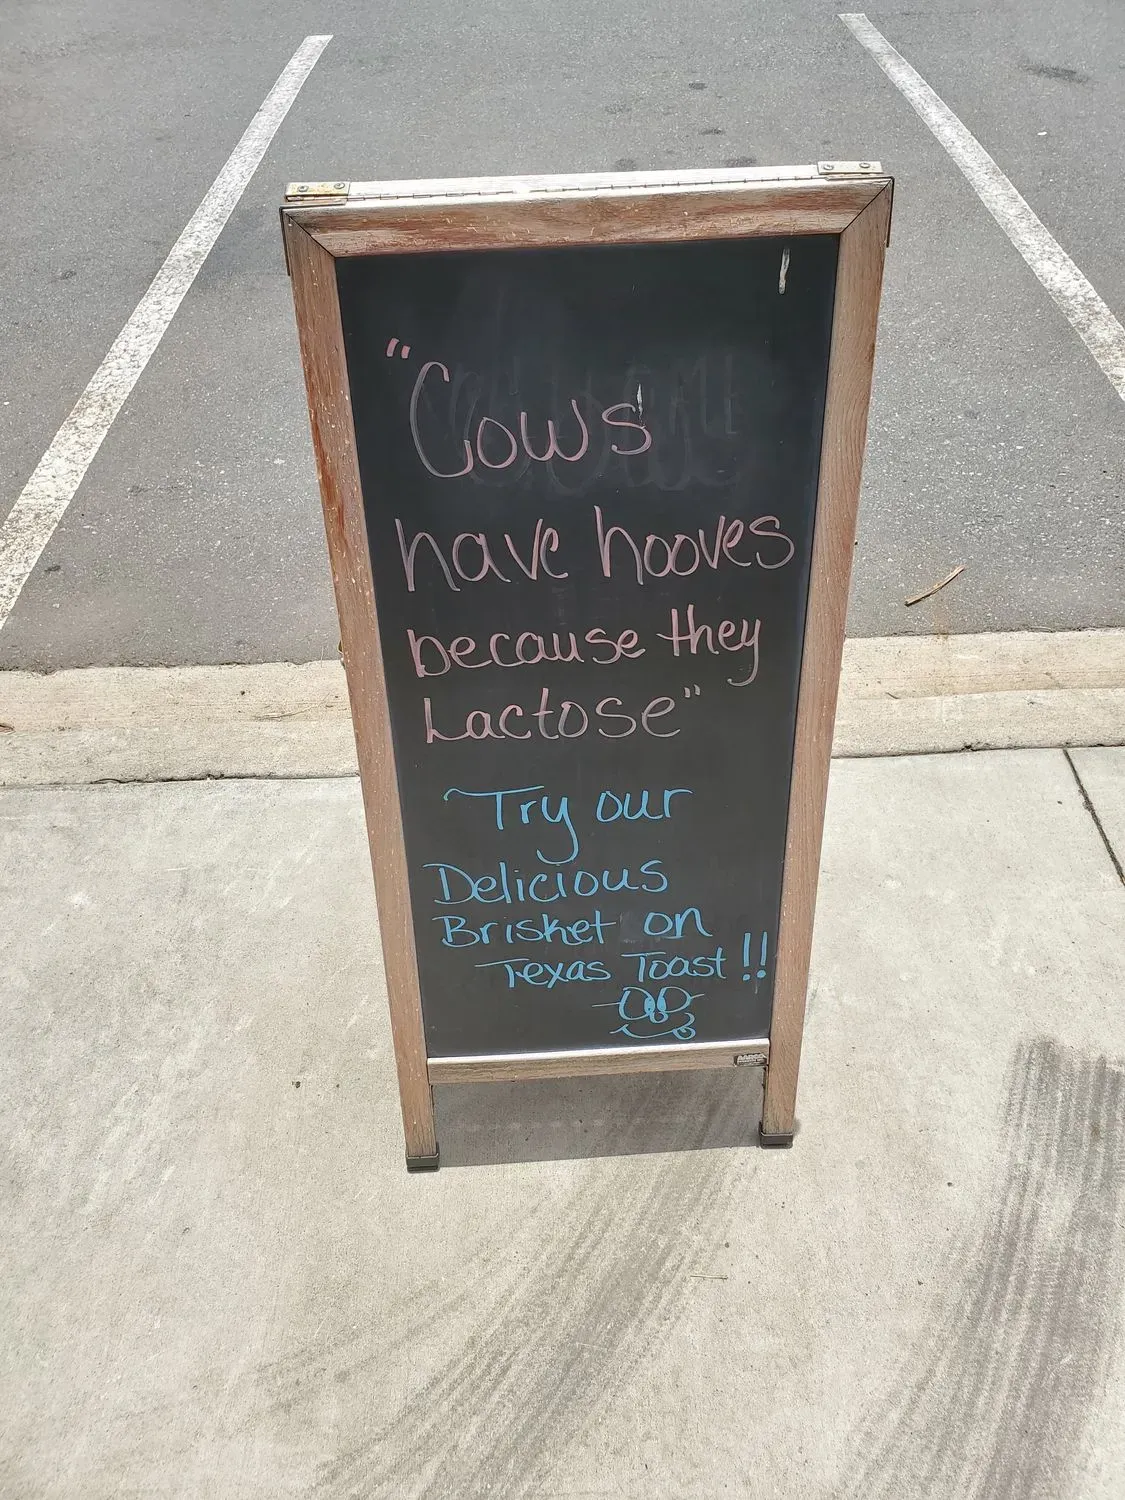 "Cows
have hooves
because they
Lactose"
Try our
Delicious
Brisket on
Texas Toast!!